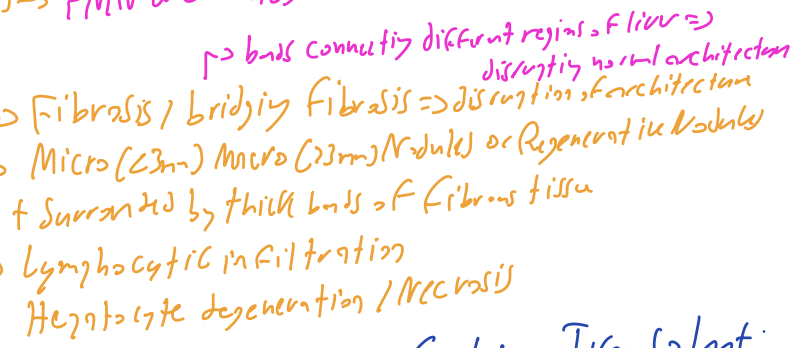 ↱> bands connectiy different regions of liver =>
disruptiy normal architecture
-> Fibrosis / bridgiy fibrosis => disruption of architecture
Micro (<3mm) Macro (>3mm) Nodules or Regenerative Nodules
+ Surronded by thick bands of fibrous tissue
Lymphocytic infiltration
Hepatocyte degeneration / Necrosis